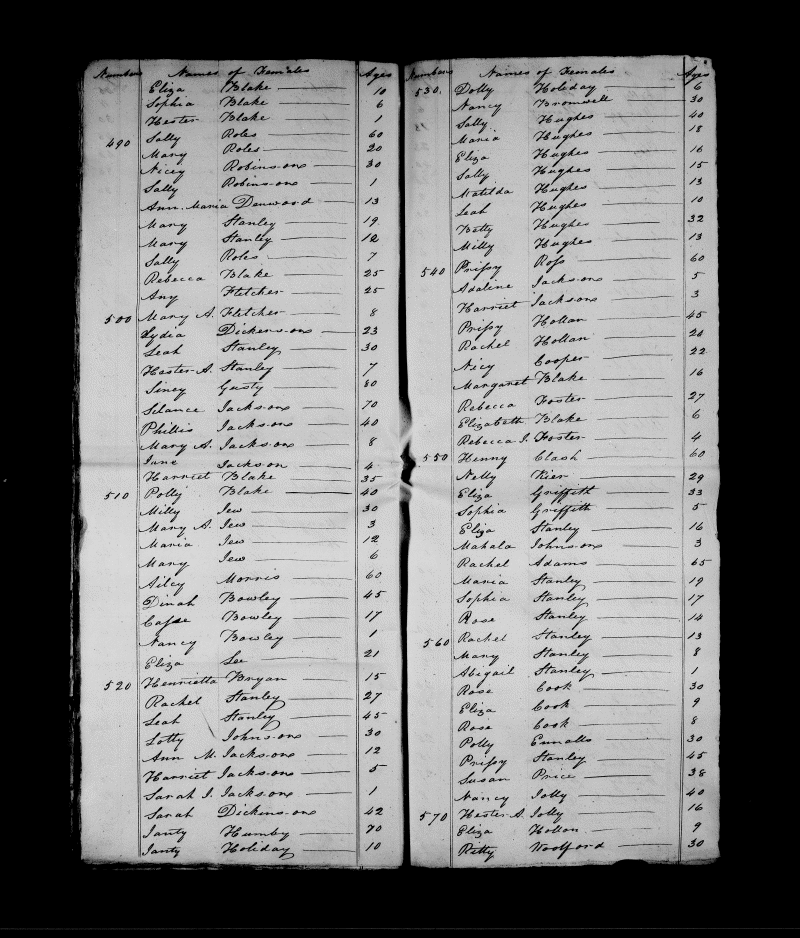 Numbers Names of Females Ages
Eliza Blake 10
Sophia Blake 6
Hester Blake 1
490 Sally Roles 60
Mary Roles 20
Nicey Robinsons 30
Sally Robinsons 1
Ann Maria Denword 13
Mary Stanley 19
Mary Stanley 12
Sally Roles 7
Rebecca Blake 25
Any Fletcher 25
500 Mary A. Fletcher 8
Lydia Dickersons 23
Leah Stanley 30
Hester A. Stanley 7
Siney Gusty 80
Selance Jacksons 70
Phillis Jacksons 40
Mary A. Jacksons 8
Jane Jackson 4
Harriet Blake 35
510 Polly Blake 40
Milly Jew 30
Mary A. Jew 3
Maria Jew 12
Mary Jew 6
Ailcy Morris 60
Dinah Bowley 45
Casse Bowley 17
Nancy Bowley 1
Eliza Lee 21
520 Henrietta Bryan 15
Rachel Stanley 27
Leah Stanley 45
Lotty Johnsons 30
Ann M. Jacksons 12
Harriet Jacksons 5
Sarah J. Jacksons 1
Sarah Dickinsons 42
Janty Humby 70
Janty Holiday 10
Numbers Names of Females Ages
530. Dolly Holiday 6
Nancy Bromwell 30
Sally Hughes 40
Maria Hughes 18
Eliza Hughes 16
Sally Hughes 15
Matilda Hughes 13
Leah Hughes 10
Betty Hughes 32
Milly Hughes 13
540 Prissy Ross 60
Adaline Jacksons 5
Harriet Jacksons 3
Prissy Hollan 45
Rachel Hollan 20
Nicy Cooper 22
Margaret Blake 16
Rebecca Foster 27
Elizabeth Blake 6
Rebecca J. Foster 4
550 Henny Clash 60
Nelly Kier 29
Eliza Griffith 33
Sophia Griffith 5
Eliza Stanley 16
Mahala Johnsons 3
Rachel Adams 65
Maria Stanley 19
Sophia Stanley 17
Rose Stanley 14
560 Rachel Stanley 13
Mary Stanley 8
Abigail Stanley 1
Rose Cook 30
Eliza Cook 9
Rose Cook 8
Polly Ennalls 30
Prissy Stanley 45
Susan Price 38
Nancy Jolly 40
570 Hester A. Jolly 16
Eliza Hollon 9
Kitty Woolford 30